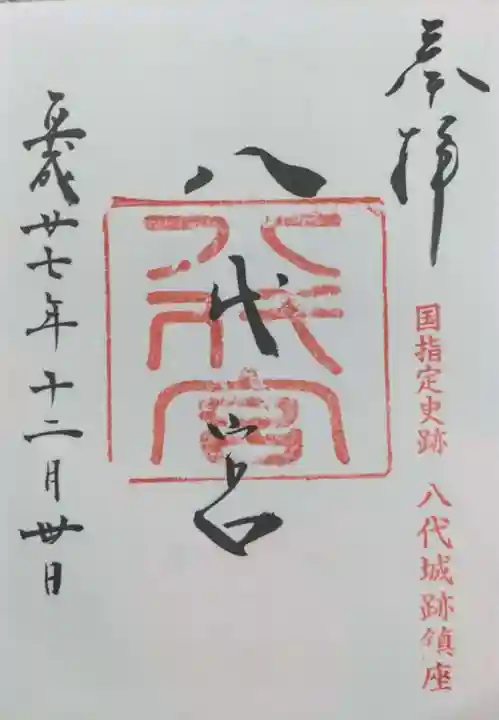 奉拝
国指定史跡 八代城跡鎮座
八代宮
八代宮
平成廿七年十二月卅日